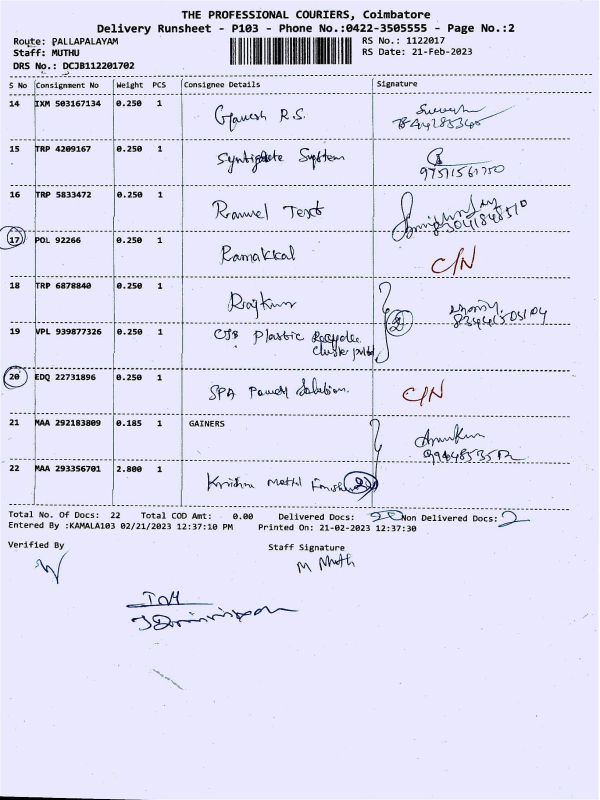 THE PROFESSIONAL COURIERS, Coimbatore
Delivery Runsheet - P103 - Phone No.:0422-3505555 - Page No.:2
Route: PALLAPALAYAM RS No.: 1122017
Staff: MUTHU RS Date: 21-Feb-2023
DRS No.: DCJB112201702
S No Consignment No Weight PCS Consignee Details Signature
14 IXM 503167134 0.250 1 Ganesh R.S.
15 TRP 4209167 0.250 1 System
16 TRP 5833472 0.250 1 Text
17 POL 92266 0.250 1 Ramakkal C/N
18 TRP 6878840 0.250 1 Rajkumar 2
19 VPL 939877326 0.250 1 CJB Plastic Recycle
cluster
20 EDQ 22731896 0.250 1 SPA Power Solution. C/N
21 MAA 292183809 0.185 1 GAINERS
22 MAA 293356701 2.800 1 Krishna Methl
Total No. Of Docs: 22 Total COD Amt: 0.00 Delivered Docs: 20 Non Delivered Docs: 2
Entered By :KAMALA103 02/21/2023 12:37:10 PM Printed On: 21-02-2023 12:37:30
Verified By Staff Signature
M Muth